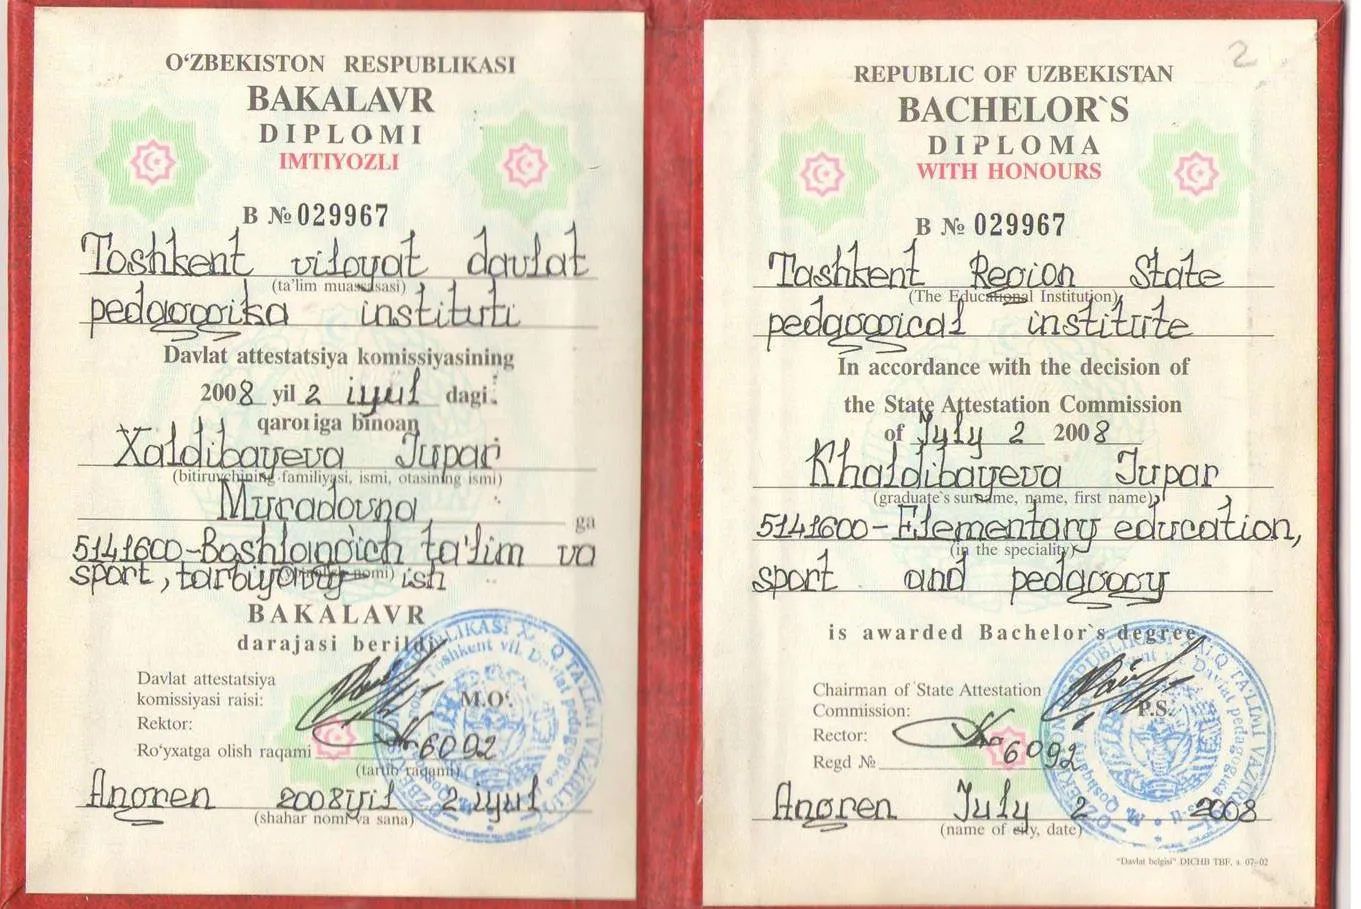 O‘ZBEKISTON RESPUBLIKASI
BAKALAVR
DIPLOMI
IMTIYOZLI
B № 029967
Toshkent viloyat davlat
(ta’lim muassasasi)
pedagogika instituti
Davlat attestatsiya komissiyasining
2008 yil 2 iyul dagi
qaroriga binoan
Xaldibayeva Jupar
(bitiruvchining familiyasi, ismi, otasining ismi)
Muradovna ga
5141600-Boshlang'ich ta'lim va
nomi)
sport, tarbiyaviy ish
BAKALAVR
darajasi berildi
Davlat attestatsiya
komissiyasi raisi:
M.O‘.
Rektor:
Ro‘yxatga olish raqami 6092
(tartib raqami)
Angren 2008 yil 2 iyul
(shahar nomi va sana)
2
REPUBLIC OF UZBEKISTAN
BACHELOR`S
DIPLOMA
WITH HONOURS
B № 029967
Tashkent Region State
(The Educational Institution)
pedagogical institute
In accordance with the decision of
the State Attestation Commission
of July 2 2008
Khaldibayeva Jupar
(graduate`s surname, name, first name)
5141600-Elementary education,
(in the speciality)
sport and pedagogy
is awarded Bachelor`s degree
Chairman of State Attestation
Commission:
P.S.
Rector:
Regd № 6092
Angren July 2 2008
(name of city, date)
"Davlat belgisi" DICHB TBF, з. 07–02